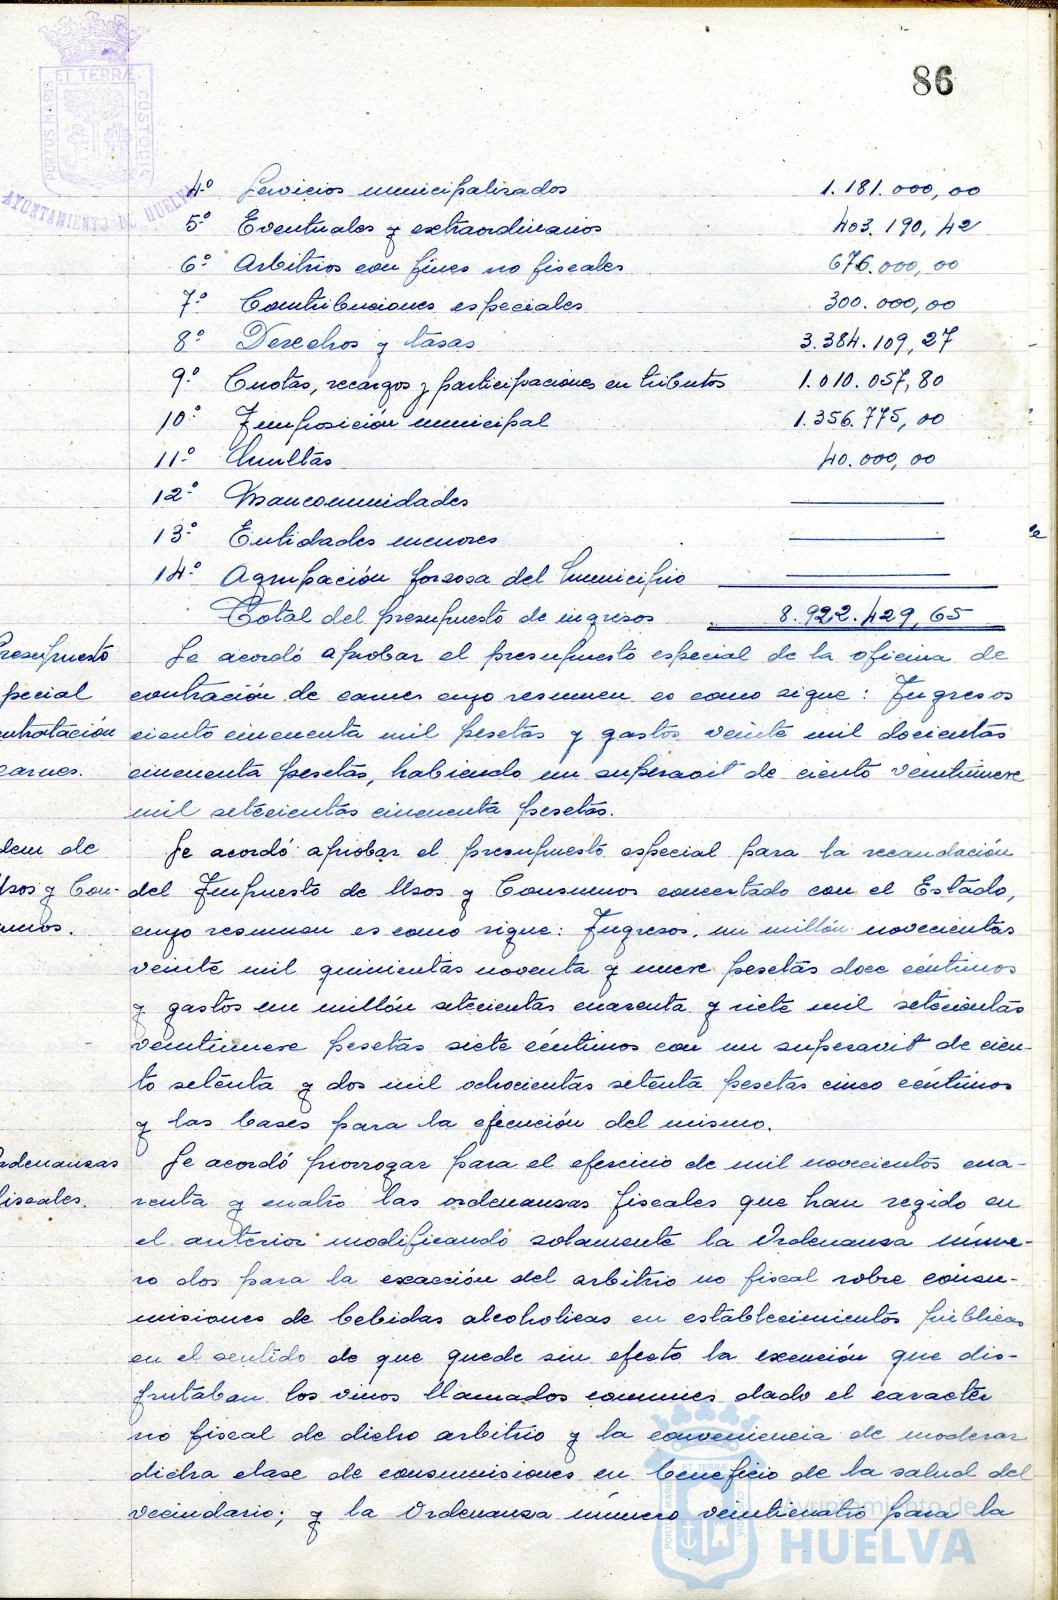 86
PORTUS MARIS ET TERRÆ CUSTODIA
AYUNTAMIENTO DE HUELVA
4º Servicios municipalizados 1.181.000,00
5º Eventuales y extraordinarios 403.190,42
6º Arbitrios con fines no fiscales 676.000,00
7º Contribuciones especiales 300.000,00
8º Derechos y tasas 3.384.109,27
9º Cuotas, recargos y participaciones en tributos 1.010.057,80
10º Imposición municipal 1.356.775,00
11º Multas 40.000,00
12º Mancomunidades
13º Entidades menores
14º Agrupación forzosa del Municipio
Total del presupuesto de ingresos 8.922.429,65
resupuesto
pecial
ntratación
carnes.
Se acordó aprobar el presupuesto especial de la oficina de
contración de carnes cuyo resumen es como sigue: Ingresos
ciento cincuenta mil pesetas y gastos veinte mil docientas
cincuenta pesetas, habiendo un superavit de ciento veintinueve
mil setecientas cincuenta pesetas.
dem de
Usos y Con-
umos.
Se acordó aprobar el presupuesto especial para la recaudación
del Impuesto de Usos y Consumos concertado con el Estado,
cuyo resumen es como sigue: Ingresos, un millón novecientas
veinte mil quinientas noventa y nueve pesetas doce céntimos
y gastos un millón setecientas cuarenta y siete mil setecientas
veintinueve pesetas siete céntimos con un superavit de cien-
to setenta y dos mil ochocientas setenta pesetas cinco céntimos
y las bases para la ejecución del mismo.
rdenanzas
fiscales.
Se acordó prorrogar para el ejercicio de mil novecientos cua-
renta y cuatro las ordenanzas fiscales que han regido en
el anterior modificando solamente la Ordenanza núme-
ro dos para la exacción del arbitrio no fiscal sobre consu-
misiones de bebidas alcoholicas en establecimientos públicos
en el sentido de que quede sin efecto la exención que dis-
frutaban los vinos llamados comunes dado el caracter
no fiscal de dicho arbitrio y la conveniencia de moderar
dicha clase de consumisiones en beneficio de la salud del
vecindario; y la Ordenanza número veinticuatro para la
Ayuntamiento de
HUELVA